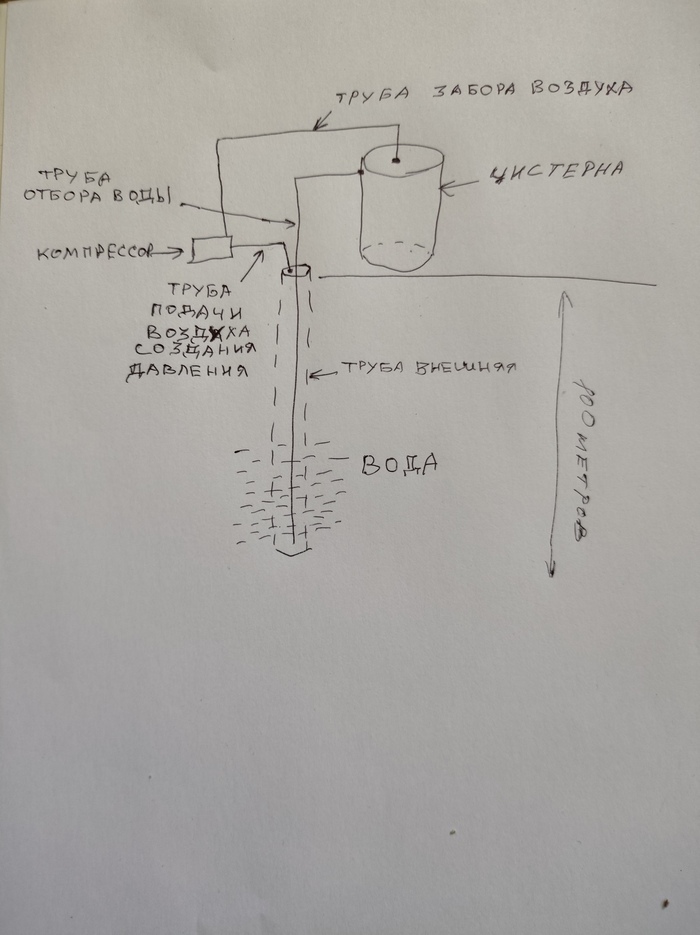 ТРУБА ЗАБОРА ВОЗДУХА
ТРУБА
ОТБОРА ВОДЫ
ЦИСТЕРНА
КОМПРЕССОР
ТРУБА
ПОДАЧИ
ВОЗДУХА
СОЗДАНИЯ
ДАВЛЕНИЯ
ТРУБА ВНЕШНЯЯ
ВОДА
100 МЕТРОВ